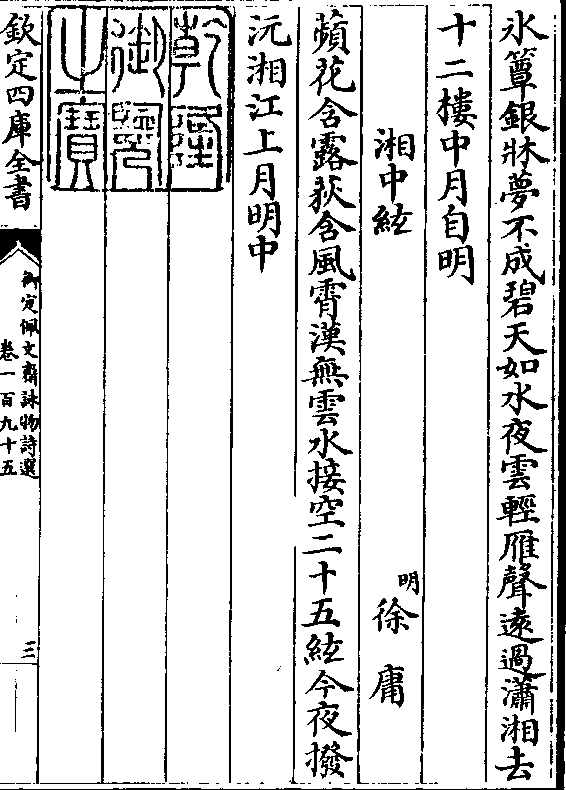 氷簟銀牀夢不成碧天如水夜雲輕雁聲遠過瀟湘去
十二樓中月自明
湘中絃
明徐庸
蘋花含露荻含風霄漢無雲水接空二十五絃今夜撥
沅湘江上月明中
乾隆
御覽
之寶
欽定四庫全書
御定佩文齋詠物詩選
卷一百九十五
三